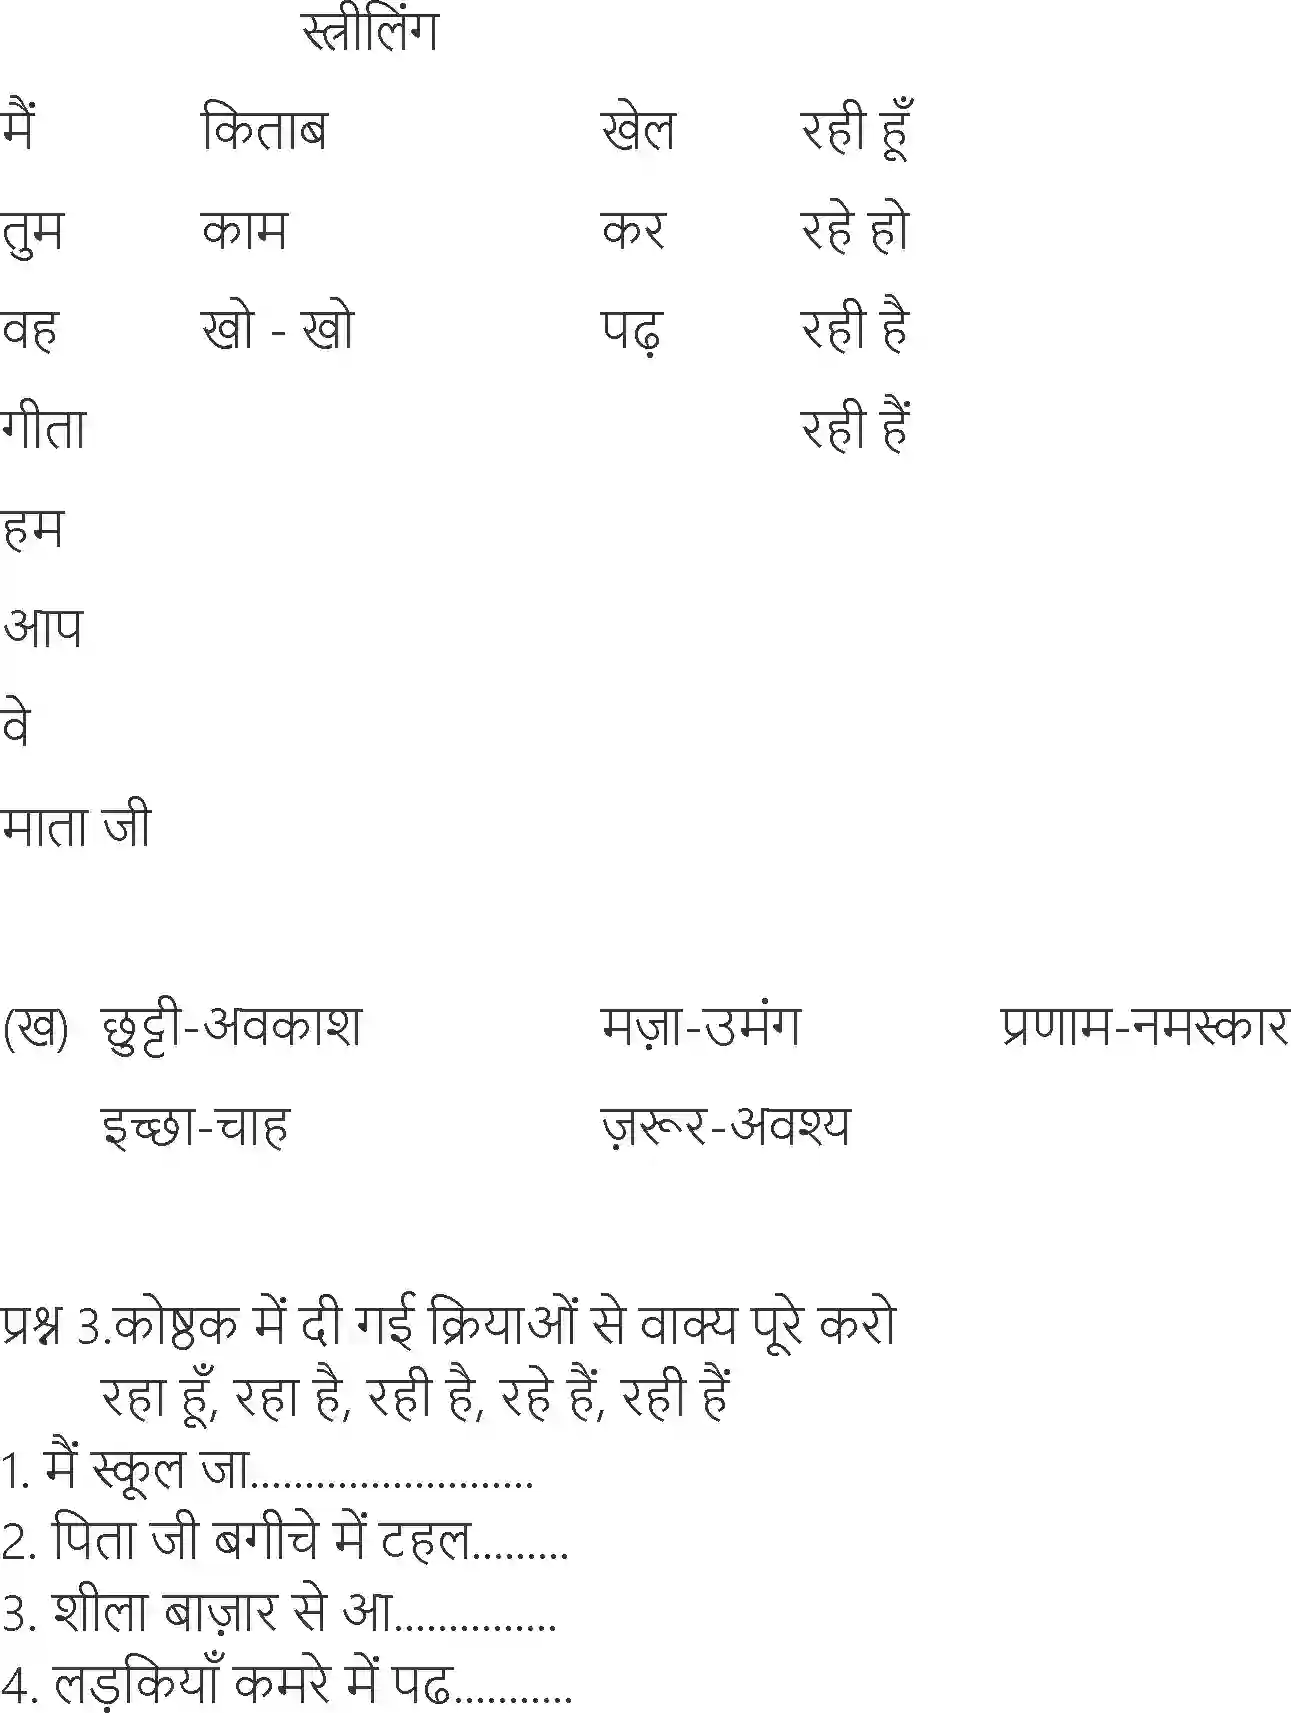 स्त्रीलिंग
मैं किताब खेल रही हूँ
तुम काम कर रहे हो
वह खो - खो पढ़ रही है
गीता रही हैं
हम
आप
वे
माता जी
(ख) छुट्टी-अवकाश मज़ा-उमंग प्रणाम-नमस्कार
इच्छा-चाह ज़रूर-अवश्य
प्रश्न 3.कोष्ठक में दी गई क्रियाओं से वाक्य पूरे करो
रहा हूँ, रहा है, रही है, रहे हैं, रही हैं
1. मैं स्कूल जा..........................
2. पिता जी बगीचे में टहल.........
3. शीला बाज़ार से आ...............
4. लड़कियाँ कमरे में पढ...........